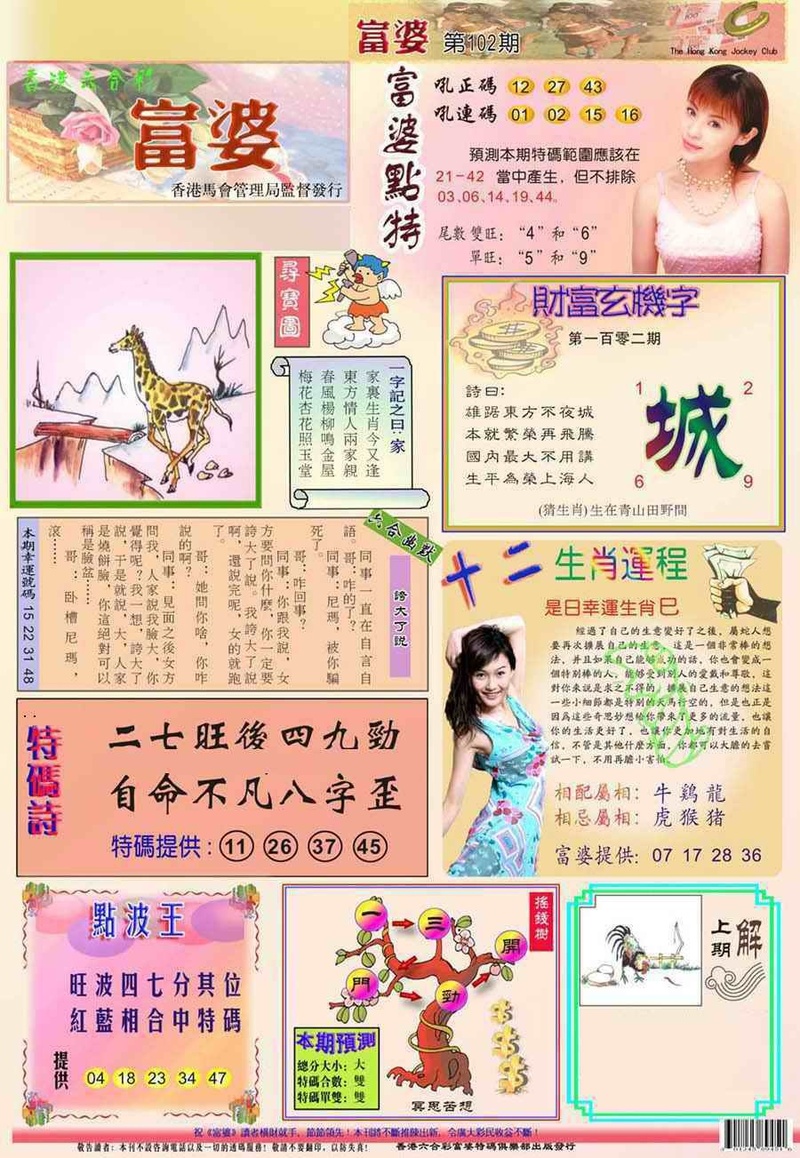 富婆 第102期
The Hong Kong Jockey Club
香港六合彩
富婆
香港馬會管理局監督發行
富婆點特
吼正碼 12 27 43
吼連碼 01 02 15 16
預測本期特碼範圍應該在
21-42 當中產生，但不排除
03、06、14、19、44。
尾數雙旺：“4”和“6”
單旺：“5”和“9”
尋寶圖
一字記之曰：家
家裏生肖今又逢
東方情人兩家親
春風楊柳鳴金屋
梅花杏花照玉堂
財富玄機字
第一百零二期
詩曰：
雄踞東方不夜城
本就繁榮再飛騰
國內最大不用講
生平為榮上海人
1 2
城
6 9
(猜生肖)生在青山田野間
六合幽默
誇大了說
同事一直在自言自
語。哥：咋的了？
同事：尼瑪，被你騙
死了。
哥：咋回事？
同事：你跟我說，女
方要問你什麼，你一定要
誇大了說。我誇大了說
啊，還說完呢，女的就跑
了。
哥：她問你啥，你咋
說的啊？
同事：見面之後女方
問我，人家說我臉大，你
覺得呢？我一想，誇大了
說，于是就說，大，人家
是燒餅臉，你這絕對可以
稱是臉盆……
哥：卧槽尼瑪，
滾……
本期幸運號碼 15 22 31 48
十二生肖運程
是日幸運生肖巳
經過了自己的生意變好了之後，屬蛇人想
要再求擴展自己的生意，這是一個非常棒的想
法，并且如果自己能够成功的話，你也會變成一
個特別棒的人，能够受到別人的愛戴和尊敬，這
對你來說是求之不得的，擴展自己生意的想法這
一些小細節都是特別的天馬行空的，但是也正是
因爲這些奇思妙想給你帶來了更多的流量，也讓
你的生活更好了，也讓你更加地有對生活的自
信，不管是其他什麼方面，你都可以大膽的去嘗
試一下，不用再膽小害怕。
相配屬相：牛鷄龍
相忌屬相：虎猴猪
富婆提供：07 17 28 36
特碼詩
二七旺後四九勁
自命不凡八字歪
特碼提供：11 26 37 45
點波王
旺波四七分其位
紅藍相合中特碼
提供 04 18 23 34 47
搖錢樹
一 三 開
門 勁
本期預測
總分大小：大
特碼合數：雙
特碼單雙：雙
冥思苦想
上期解
祝《富婆》讀者橫財就手，節節領先！本刊將不斷推陳出新，令廣大彩民收益不斷！
敬告讀者：本刊不設咨詢電話以及一切的透碼服務！敬請不要翻印，以防失真！
香港六合彩富婆特碼俱樂部出版發行